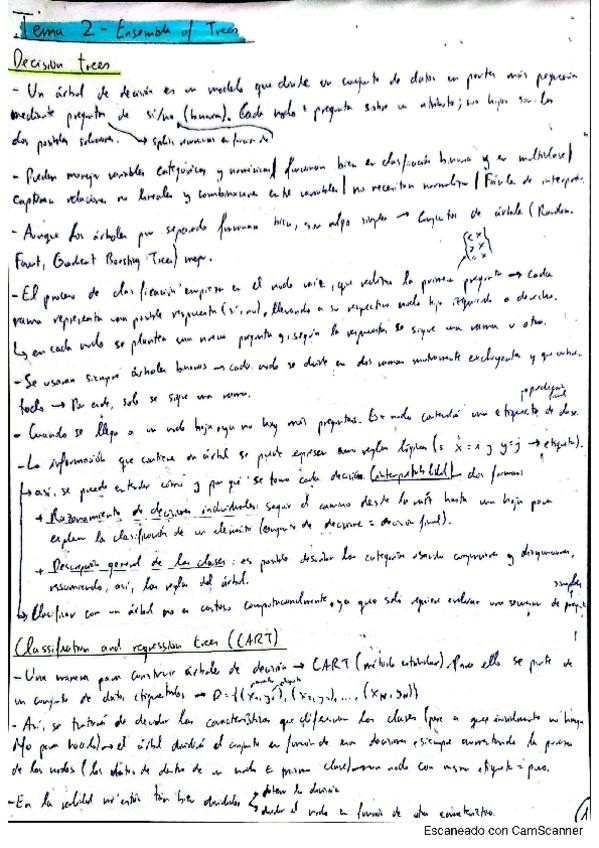 Tema 2 - Ensemble of Trees
Decision trees
- Un árbol de decisión es un modelo que divide un conjunto de datos en partes más pequeñas
mediante preguntas de sí/no (binaria). Cada nodo = pregunta sobre un atributo; sus hijos son las
dos posibles soluciones. → splits
- Pueden manejar variables categóricas y numéricas / funcionan bien en clasificación binaria y en multiclase /
capturan relaciones no lineales y combinaciones entre variables / no necesitan normalizar / Fáciles de interpretar.
- Aunque los árboles por separado funcionan bien, son algo simples → Conjuntos de árboles (Random
Forest, Gradient Boosting Trees) mejor.
- El proceso de clasificación empieza en el nodo raíz, que realiza la primera pregunta → cada
rama representa una posible respuesta (sí o no), llevando a su respectivo nodo hijo izquierdo o derecho.
↳ en cada nodo se plantea una nueva pregunta y, según la respuesta, se sigue una rama u otra.
- Se usarán siempre árboles binarios → cada nodo se divide en dos ramas mutuamente excluyentes y que cubren
todo → Por ende, solo se sigue una rama.
- Cuando se llega a un nodo hoja, ya no hay más preguntas. Este nodo contendrá una etiqueta de clase.
- La información que contiene un árbol se puede expresar como reglas lógicas (si x = i y y = j → etiqueta).
→ así, se puede entender cómo y por qué se toma cada decisión (interpretabilidad) dos formas
* Razonamiento de decisiones individuales: seguir el camino desde la raíz hasta una hoja para
explicar la clasificación de un elemento (conjunto de decisiones = decisión final).
* Descripción general de las clases: es posible describir las categorías usando conjunciones y disyunciones,
resumiendo, así, las reglas del árbol.
simples
→ Clasificar con un árbol no es costoso computacionalmente, ya que solo requiere evaluar una secuencia de preguntas
Classification and regression trees (CART)
- Una manera para construir árboles de decisión → CART (método). Para ello se parte de
un conjunto de datos etiquetados → D = {(x₁, y₁), (x₂, y₂), ..., (x_N, y_N)}
- Así, se tratará de descubrir las características que diferencian las clases
el árbol dividirá el conjunto en función de esas decisiones, siempre aumentando la pureza
de los nodos (los datos de dentro de un nodo ∈ misma clase) → un nodo con misma etiqueta = puro.
- En la realidad no están tan bien divididos detener la división
dividir el nodo en función de otra característica.
1
Escaneado con CamScanner